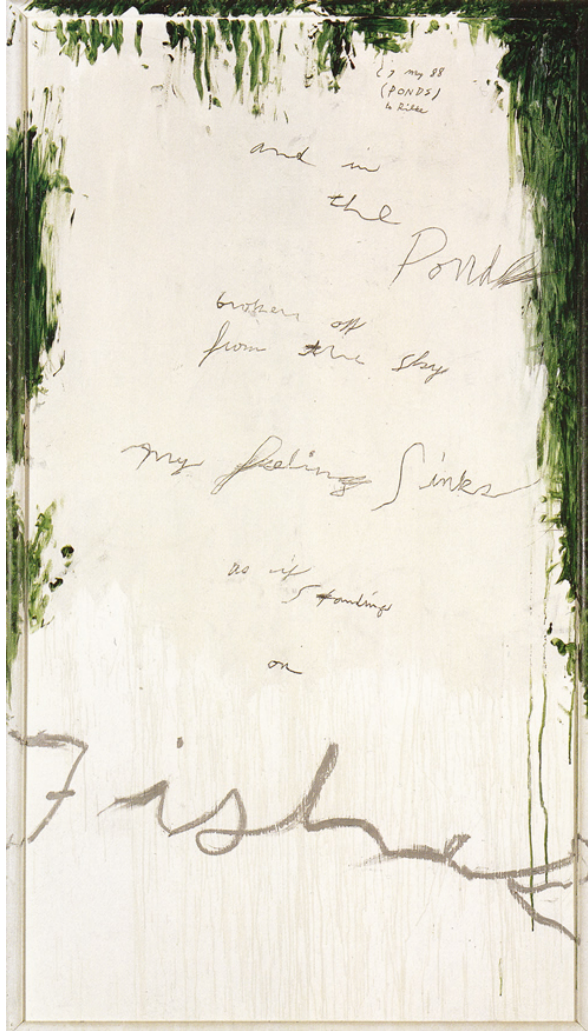 (PONDS)
to Rilke
and in
the
Ponds
broken off
from the sky
my feeling Sinks
as if
Standing
on
Fishes